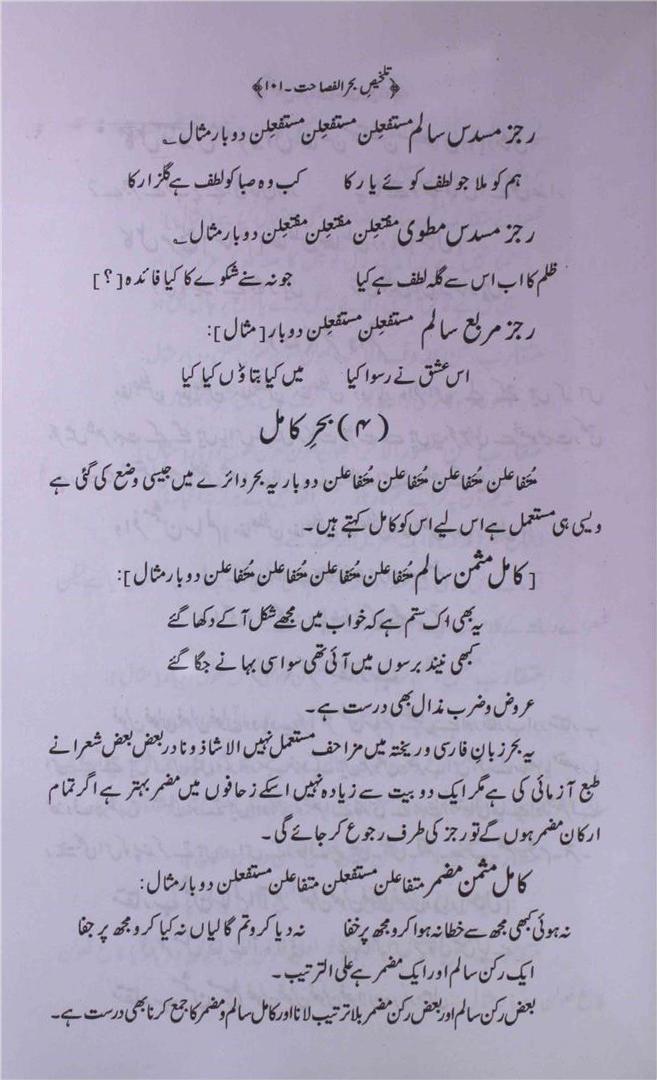 ﴿تلخیص بحر الفصاحت۔۱۰۱﴾
رجز مسدس سالم مستفعلن مستفعلن مستفعلن دوبار مثال ؎
ہم کو ملا جو لطف کوئے یار کا کب وہ صبا کو لطف ہے گلزار کا
رجز مسدس مطوی مفتعلن مفتعلن مفتعلن دوبار مثال ؎
ظلم کا اب اس سے گلہ لطف ہے کیا جو نہ سنے شکوے کا کیا فائدہ [؟]
رجز مربع سالم مستفعلن مستفعلن دوبار [مثال]:
اس عشق نے رسوا کیا میں کیا بتاؤں کیا کیا
(۴) بحرِ کامل
مُتَفاعلن مُتَفاعلن مُتَفاعلن مُتَفاعلن دوبار یہ بحر دائرے میں جیسی وضع کی گئی ہے
ویسی ہی مستعمل ہے اس لیے اس کو کامل کہتے ہیں۔
[کامل مثمن سالم مُتَفاعلن مُتَفاعلن مُتَفاعلن مُتَفاعلن دوبار مثال]:
یہ بھی اک ستم ہے کہ خواب میں مجھے شکل آ کے دکھا گئے
کبھی نیند برسوں میں آئی تھی سو اسی بہانے جگا گئے
عروض و ضرب مذال بھی درست ہے۔
یہ بحر زبانِ فارسی و ریختہ میں مزاحف مستعمل نہیں الا شاذ و نادر بعض بعض شعرا نے
طبع آزمائی کی ہے مگر ایک دو بیت سے زیادہ نہیں اسکے زحافوں میں مضمر بہتر ہے اگر تمام
ارکان مضمر ہوں گے تو رجز کی طرف رجوع کر جائے گی۔
کامل مثمن مضمر متفاعلن مستفعلن متفاعلن مستفعلن دوبار مثال:
نہ ہوئی کبھی مجھ سے خطا نہ ہوا کرو مجھ پر خفا نہ دیا کرو تم گالیاں نہ کیا کرو مجھ پر جفا
ایک رکن سالم اور ایک مضمر ہے علی الترتیب۔
بعض رکن سالم اور بعض رکن مضمر بلا ترتیب لانا اور کامل سالم و مضمر کا جمع کرنا بھی درست ہے۔